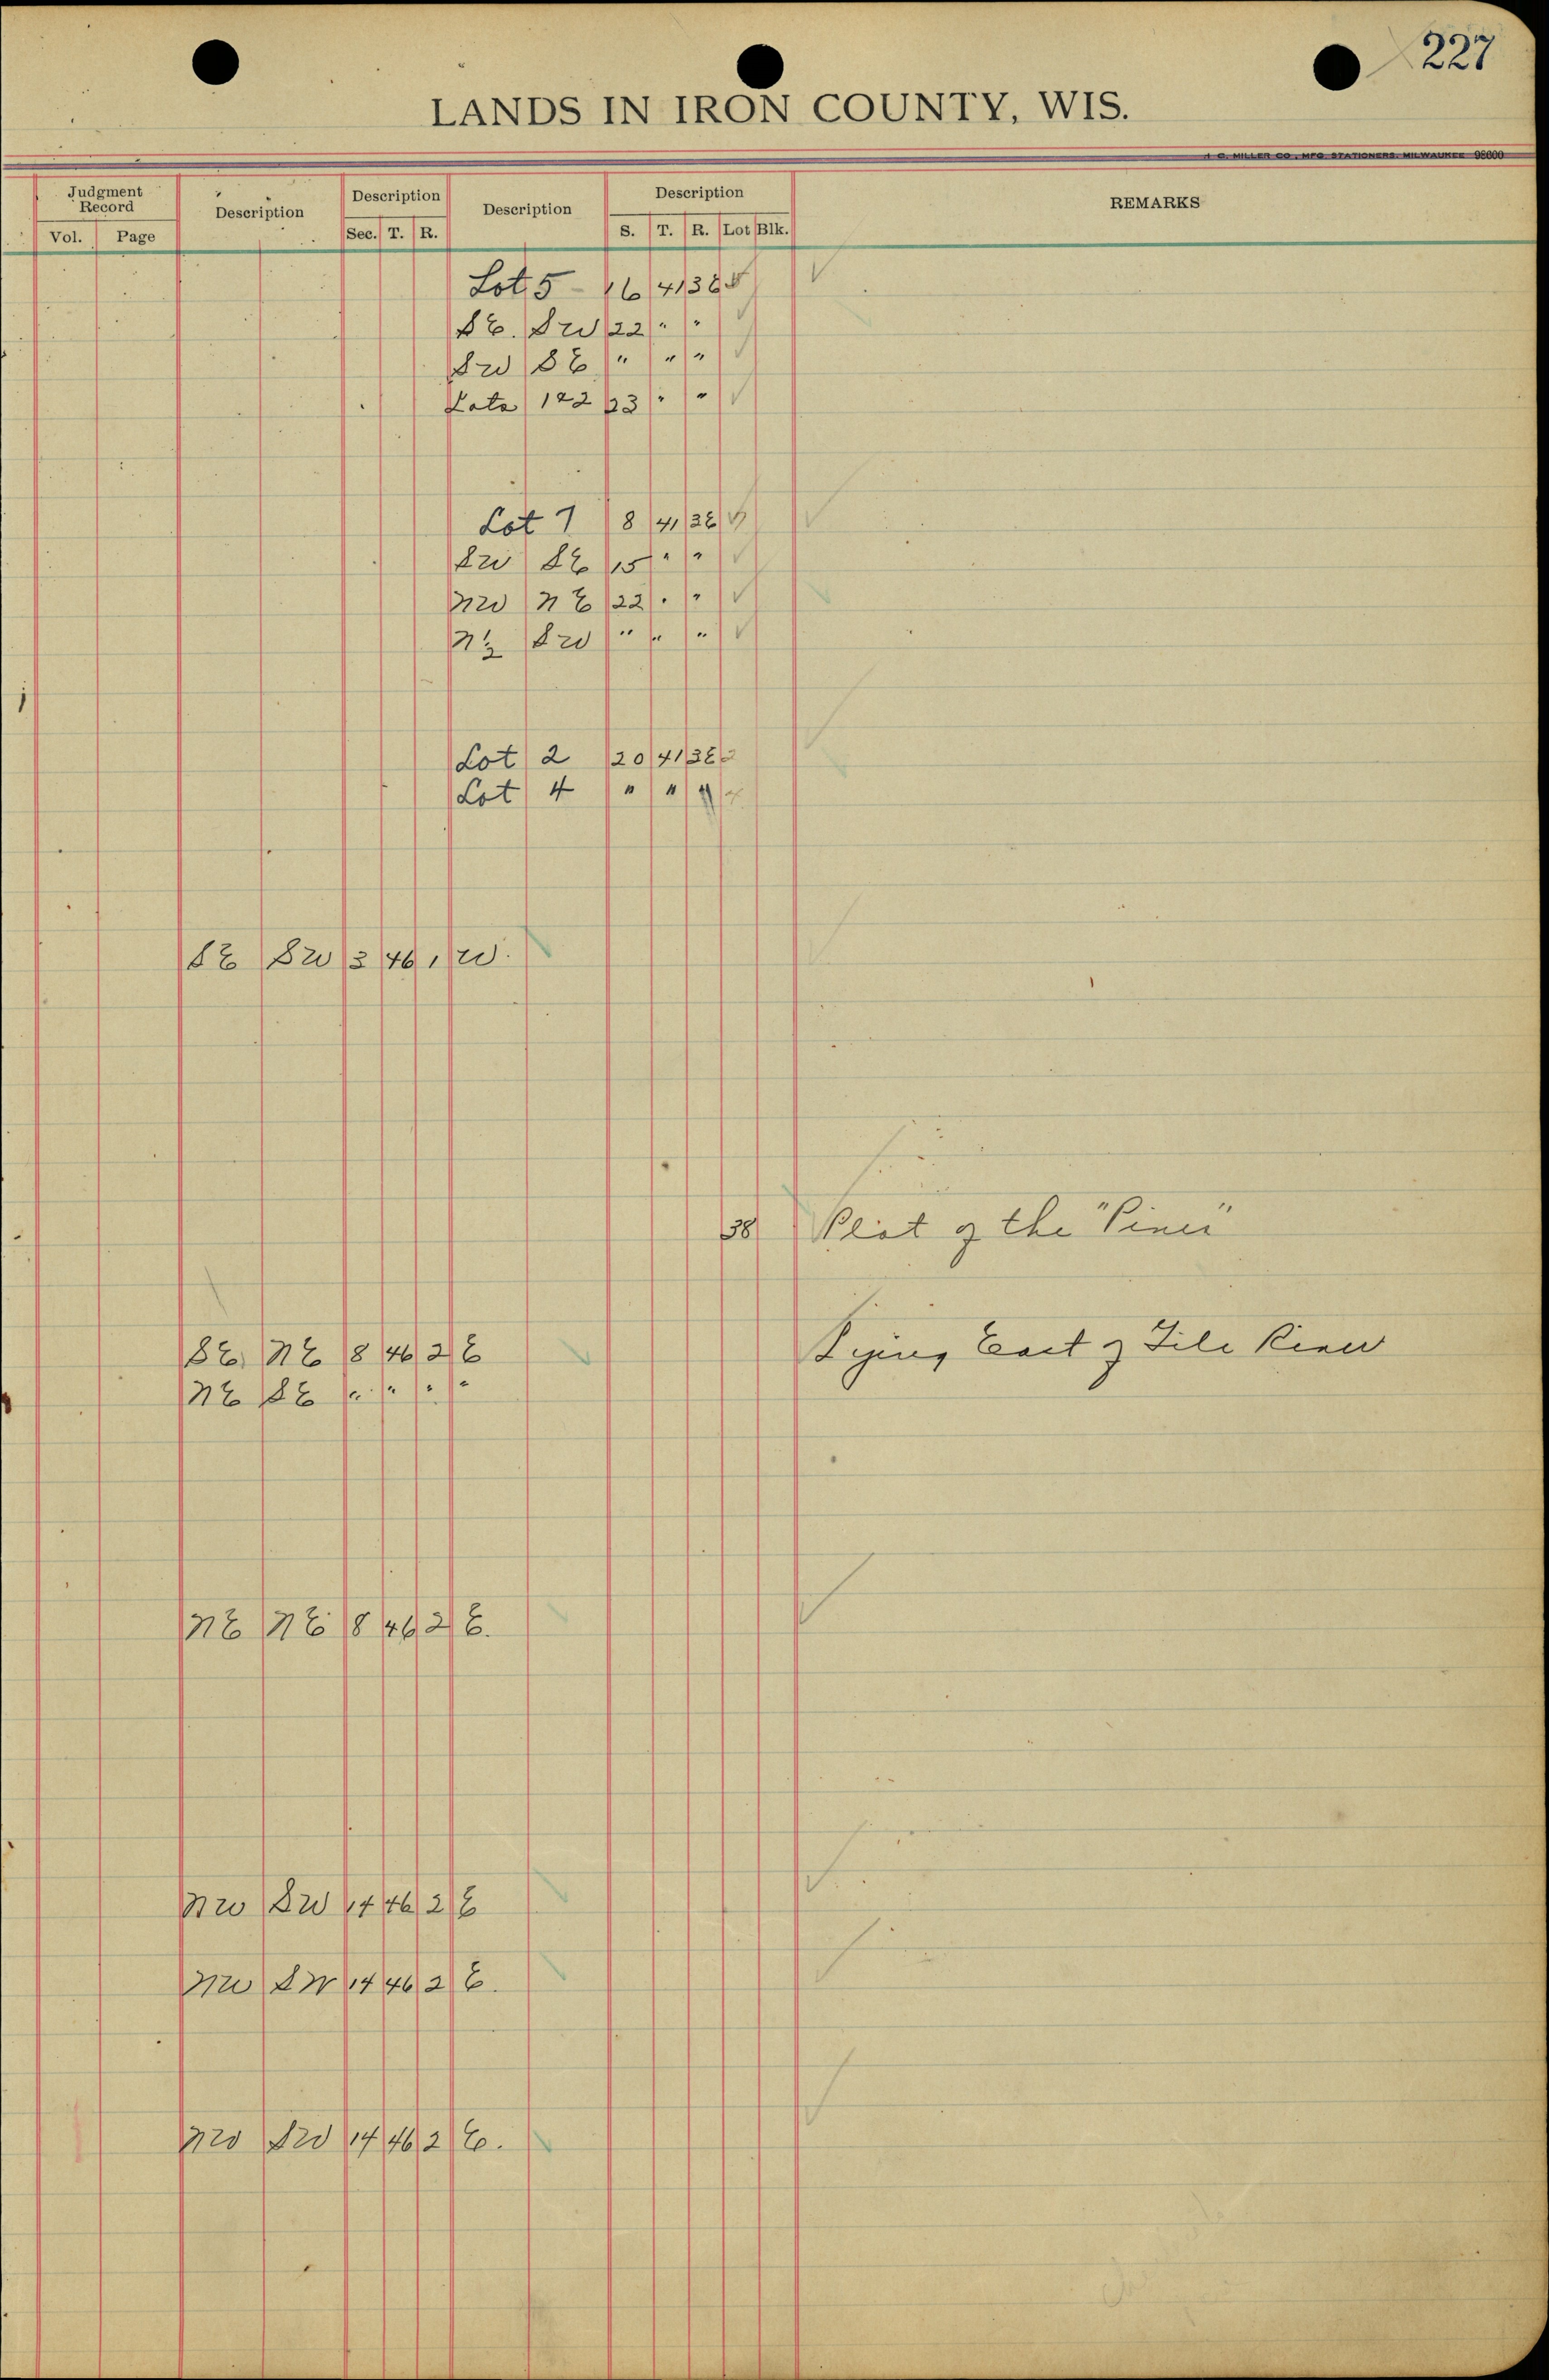 227
LANDS IN IRON COUNTY, WIS.
H. C. MILLER CO., MFG. STATIONERS, MILWAUKEE 98600
Judgment Record Description Description Description Description REMARKS
Vol. Page Sec. T. R. S. T. R. Lot Blk.
Lot 5 - 16 41 3E
SE. SW 22 " "
SW SE " " "
Lots 1&2 23 " "
Lot 7 8 41 3E
SW SE 15 " "
NW NE 22 " "
N½ SW " " "
Lot 2 20 41 3E
Lot 4 " " "
SE SW 3 46 1 W.
38 Plat of the "Pines"
SE NE 8 46 2 E Lying East of Gile River
NE SE " " " "
NE NE 8 46 2 E.
NW SW 14 46 2 E
NW SW 14 46 2 E.
NW SW 14 46 2 E.